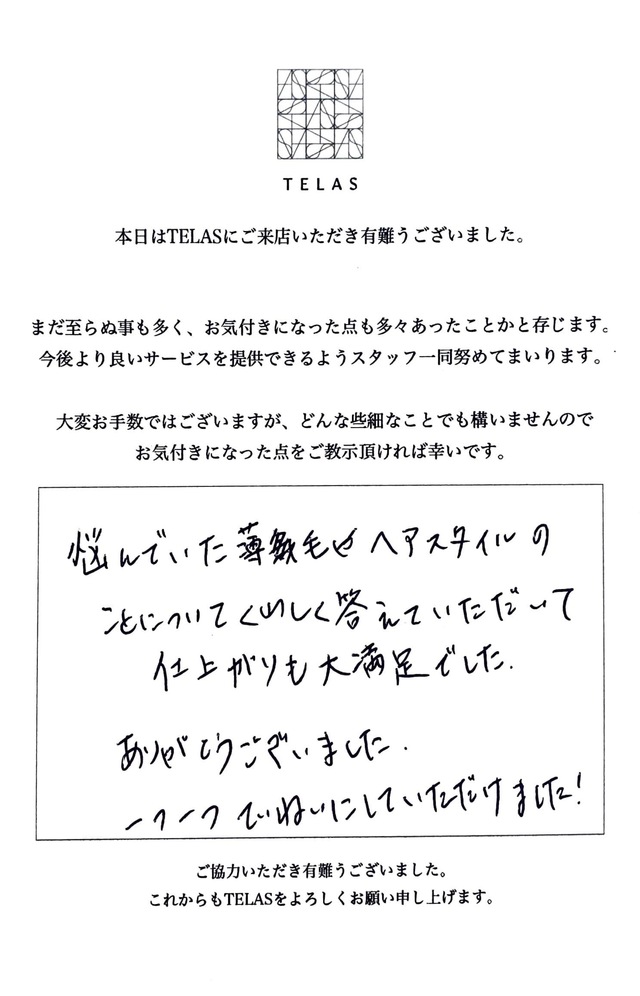 TELAS
本日はTELASにご来店いただき有難うございました。
まだ至らぬ事も多く、お気付きになった点も多々あったことかと存じます。
今後より良いサービスを提供できるようスタッフ一同努めてまいります。
大変お手数ではございますが、どんな些細なことでも構いませんので
お気付きになった点をご教示頂ければ幸いです。
悩んでいた薄毛やヘアスタイルの
ことについてくわしく答えていただいて
仕上がりも大満足でした.
ありがとうございました.
一つ一つていねいにしていただけました!
ご協力いただき有難うございました。
これからもTELASをよろしくお願い申し上げます。